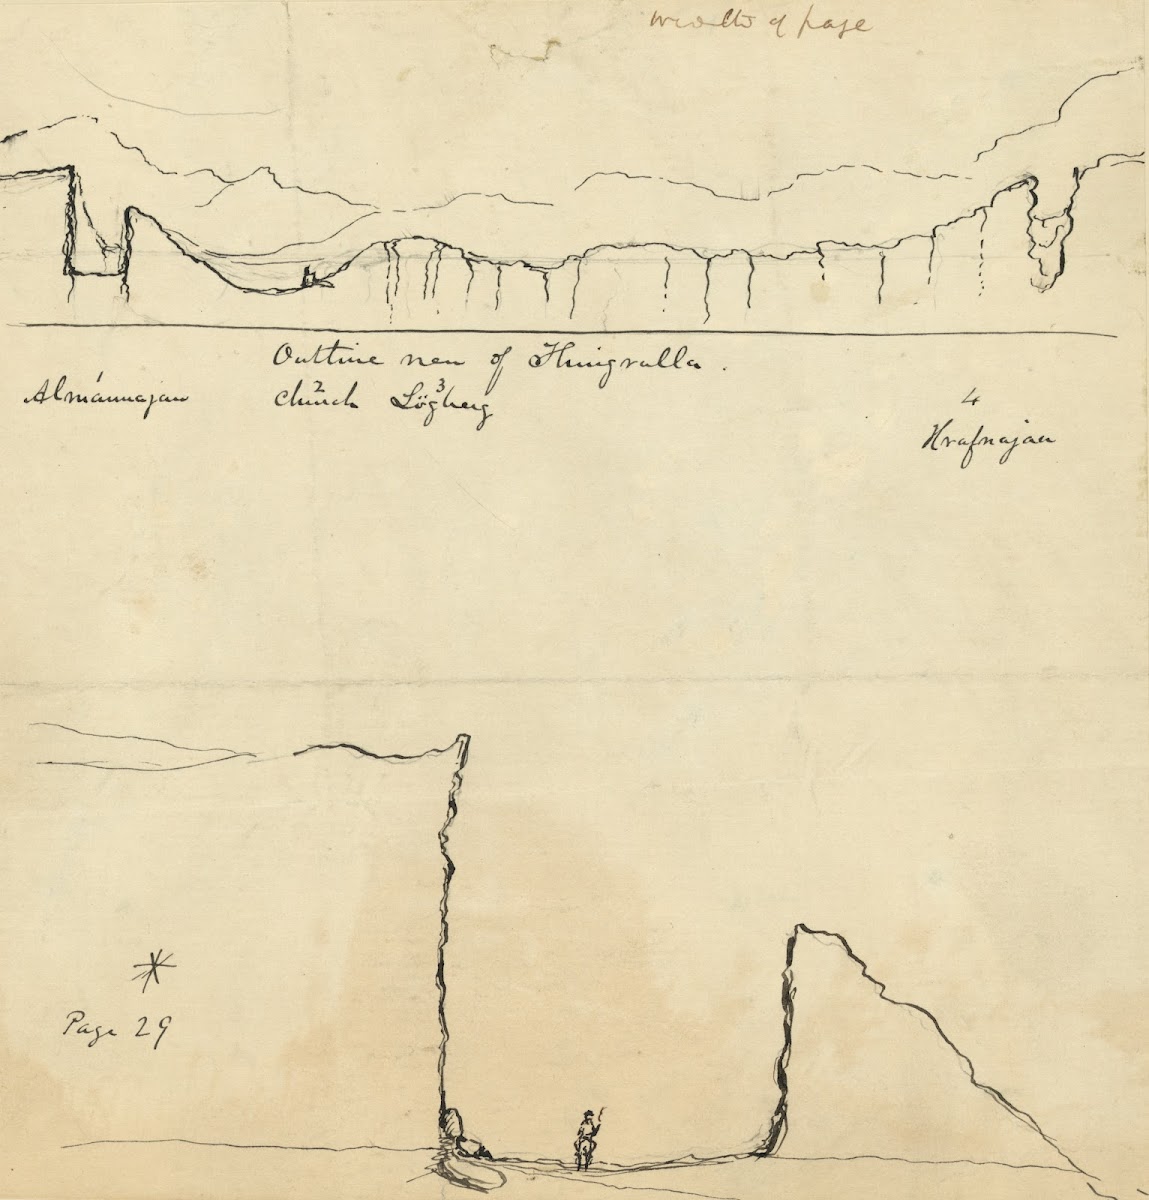 width of page
Outline view of Thingvalla.
1 2 3 4
Almannajau church Lögberg
Hrafnajau
Page 29